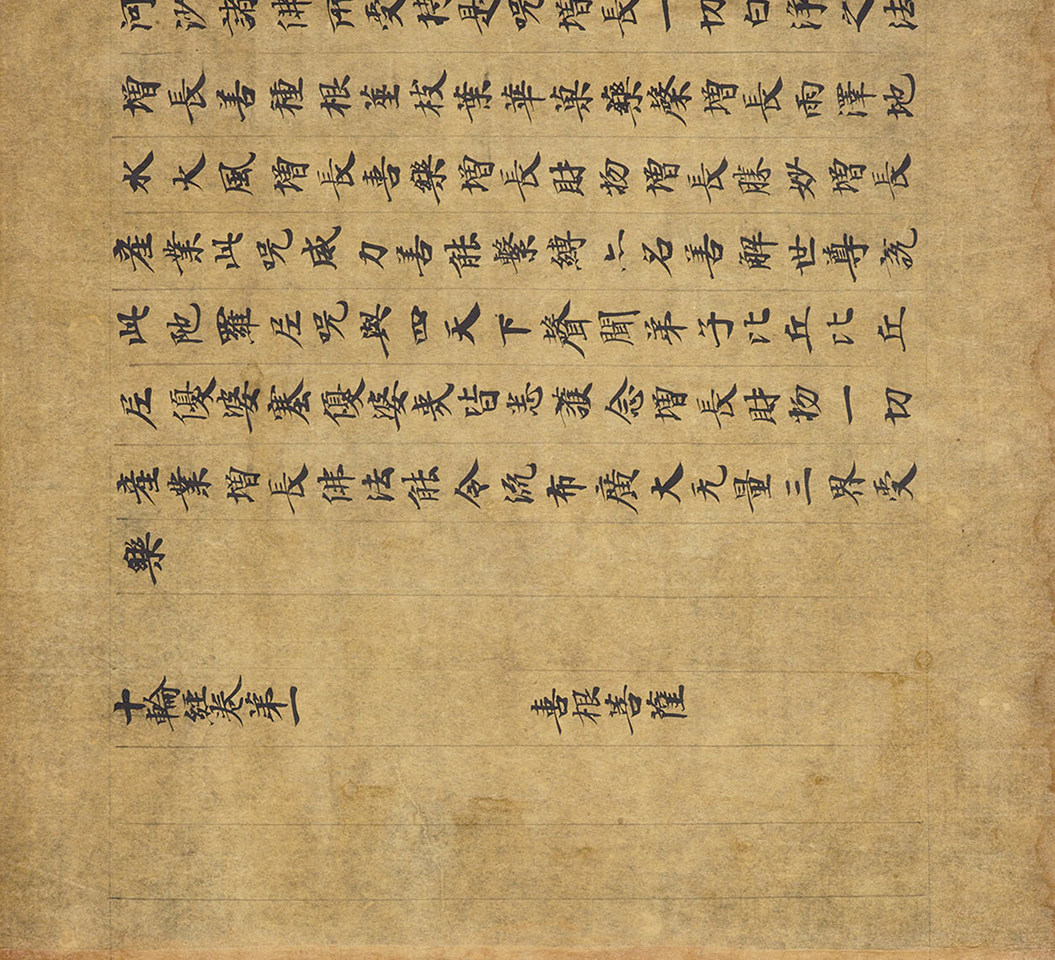 河沙諸佛所受持是呪增長一切白淨之法
增長善種根莖枝葉華菓藥增長雨澤地
水火風增長喜樂增長財物增長勝妙增長
產業此呪威力善能繫縛亦名善解世尊說
此陁羅尼呪與四天下聲聞弟子比丘比丘
尼優婆塞優婆夷皆悉護念增長財物一切
產業增長佛法能令流布廣大无量三界受
樂
十輪經卷第一 喜根菩薩